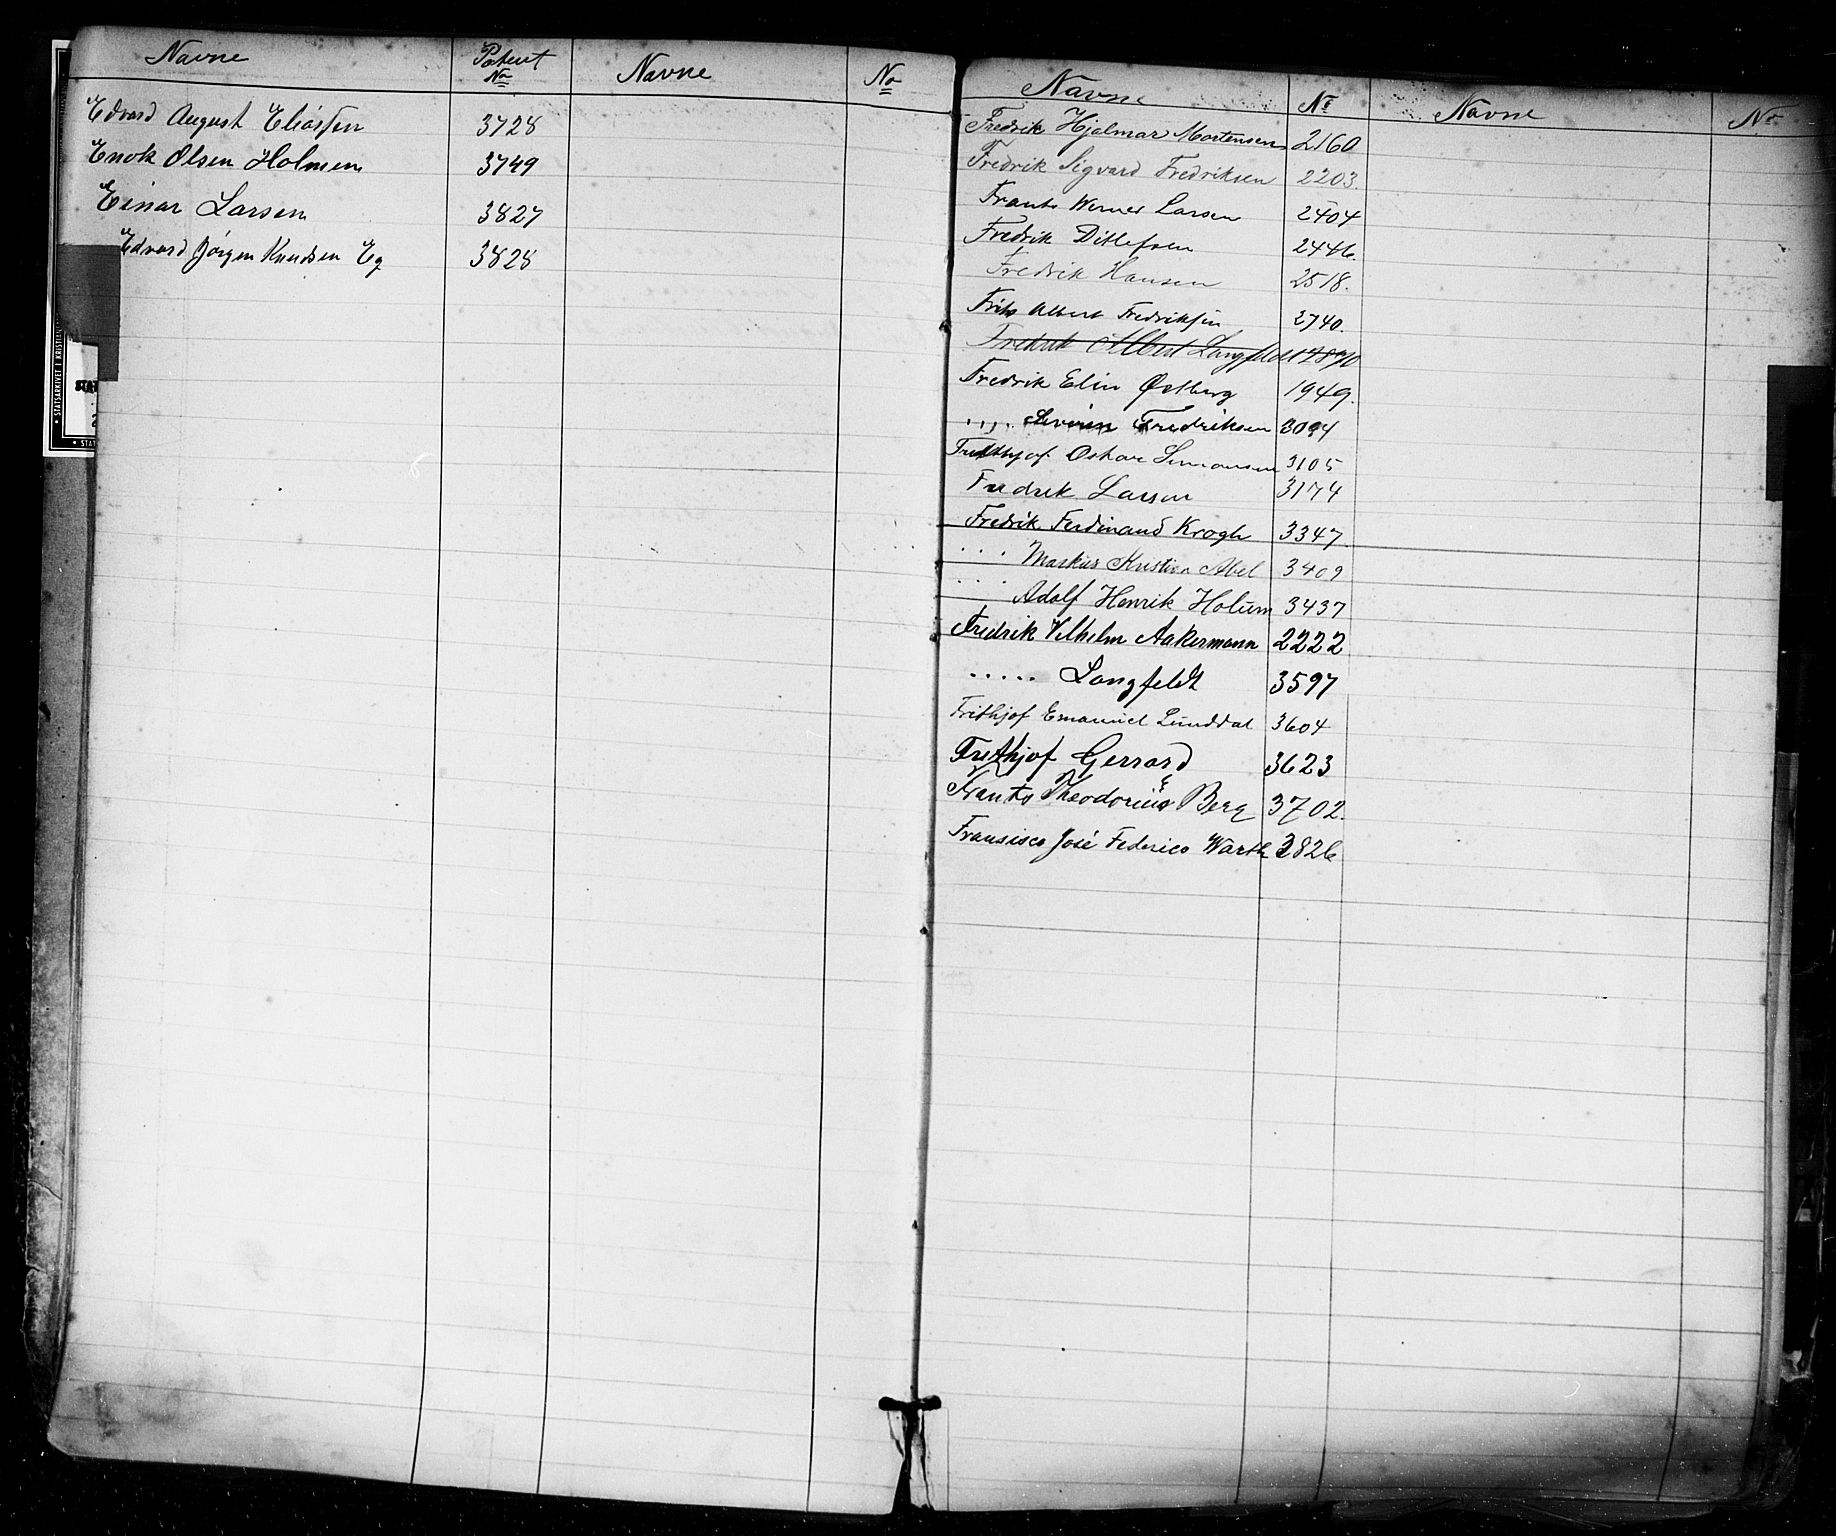 Navne Patent No Navne No
Edvard August Eliassen 3728
Enok Olsen Holmen 3749
Einar Larsen 3827
Edvard Jörgen Knudsen Eg 3828
Navne No Navne No
Fredrik Hjalmar Mortensen 2160
Fredrik Sigvard Fredriksen 2203.
Frants Werner Larsen 2404
Fredrik Ditlefsen 2446.
Fredrik Hansen 2518.
Frits Albert Fredriksen 2740.
Fredrik Albert Langfeldt
Fredrik Elin Østberg 1949.
.,,. Severin Fredriksen 3094
Fridthjof Oskar Simonsen 3105
Fredrik Larsen 3174
Fredrik Ferdinand Krogh 3347.
. . . Markus Kristian Abel 3409
. . . Adolf Henrik Holum 3437
Fredrik Vilhelm Aakermann 2222
. . . . . Langfeldt 3597
Frithjof Emanuel Lunddal 3604
Frethjof Gerrard 3623
Frants Theodorius Berg 3702.
Fransisco José Federico Warth 3826